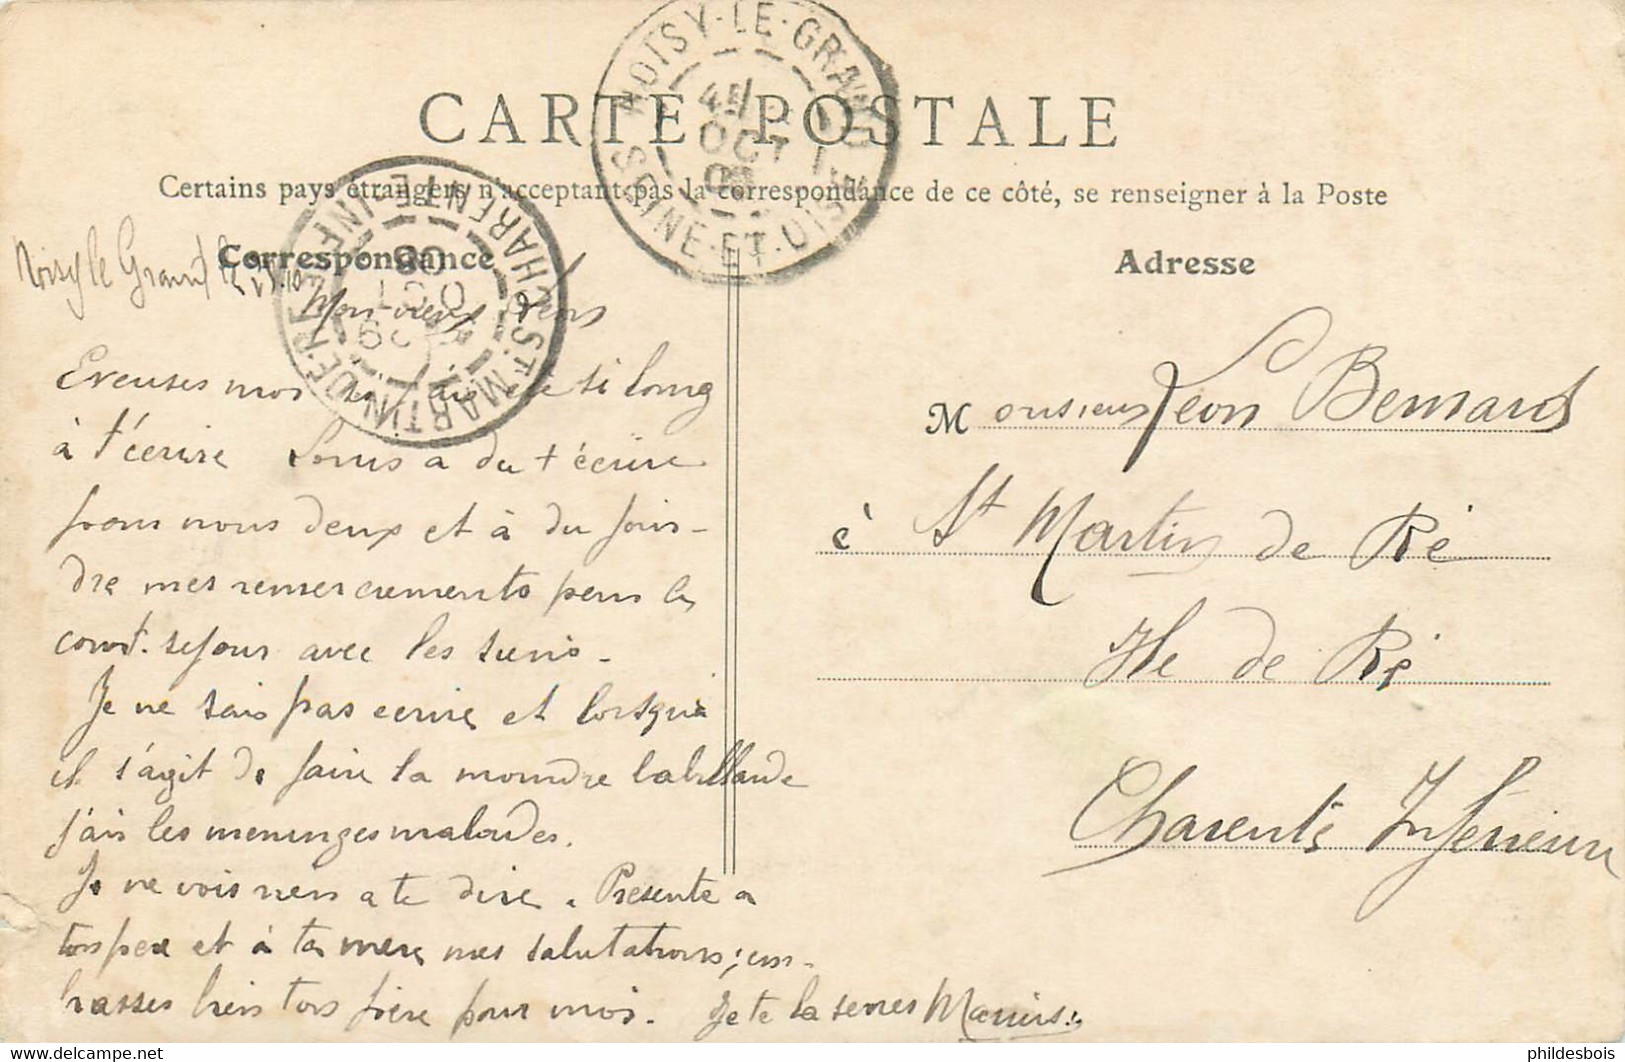 CARTE POSTALE
Certains pays étrangers n'acceptant pas la correspondance de ce côté, se renseigner à la Poste
NOISY-LE-GRAND
SEINE-ET-OISE
OCT
ST MARTIN-DE-RÉ
CHARENTE INFRE
OCT
08
Correspondance
Adresse
Noisy le Grand le
Mon vieux Léon
Excuses moi si j'ai été si long
à t'écrire Louis a du t'écrire
pour nous deux et à du join-
dre mes remerciements pour le
court séjour avec les tiens.
Je ne sais pas ecrire et lorsqu'il
il s'agit de faire la moindre
j'ai les meninges malades.
Je ne vois rien a te dire. Presente a
ton pere et à ta mere mes salutations; em-
brasses bien ton frère pour moi. Je te la serres
Monsieur Léon Bernard
à St Martin de Ré
Ile de Ré
Charente Inférieure
phildesbois